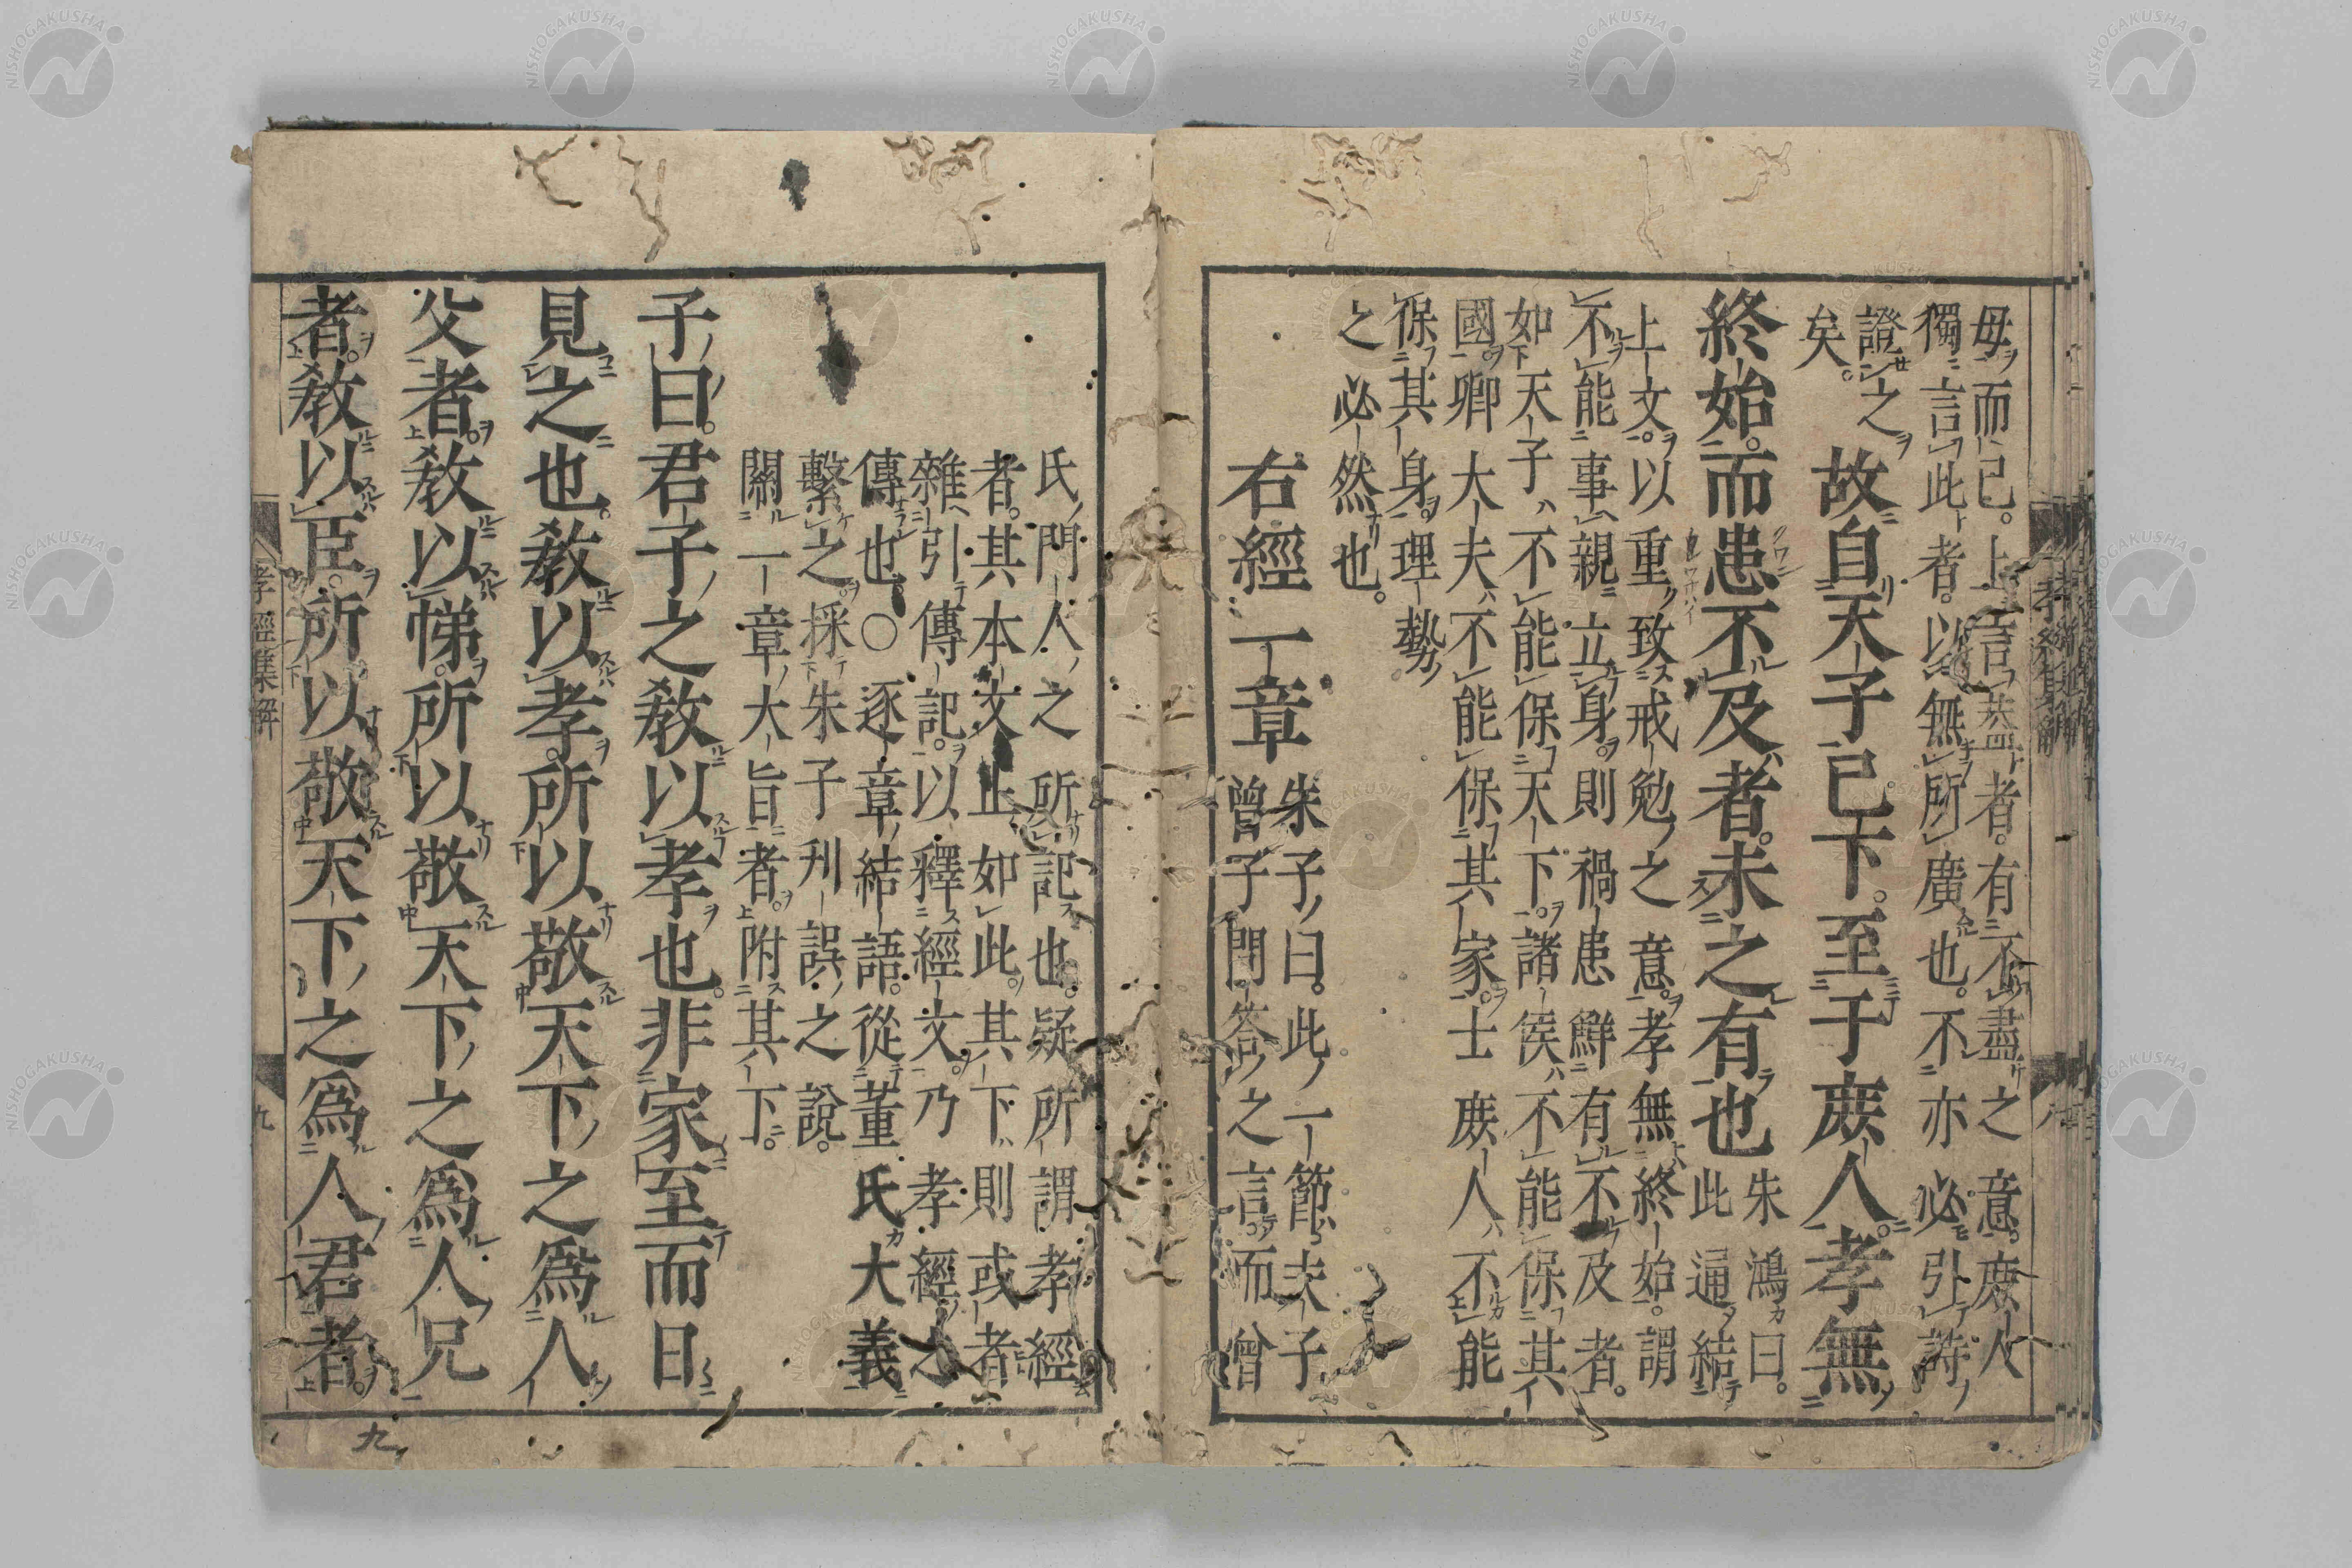 母而已。上言蓋者。有不盡之意。庶人
獨言此者。以無所廣也。不亦必引詩
證之
矣。
故自天子已下。至于庶人。孝無
終始。而患不及者。未之有也
朱鴻曰。
此通結
上文。以重致戒勉之意。孝無終始。謂
不能事親立身。則禍患鮮有不及者。
如天子不能保天下。諸侯不能保其
國。卿大夫不能保其家。士庶人不能
保其身。理勢
之必然也。
右經一章
朱子曰。此一節夫子
曾子問答之言。而曾
氏門人之所記也。疑所謂孝經
者。其本文止如此。其下則或者
雜引傳記。以釋經文。乃孝經之
傳也。〇逐章結語。從董氏大義
繫之。採朱子刋誤之說。
關一章大旨者。附其下。
子曰。君子之教以孝也。非家至而日
見之也。教以孝。所以敬天下之爲人
父者。教以悌。所以敬天下之爲人兄
者。教以臣。所以敬天下之爲人君者。
孝經集解
九
九
NISHOGAKUSHA